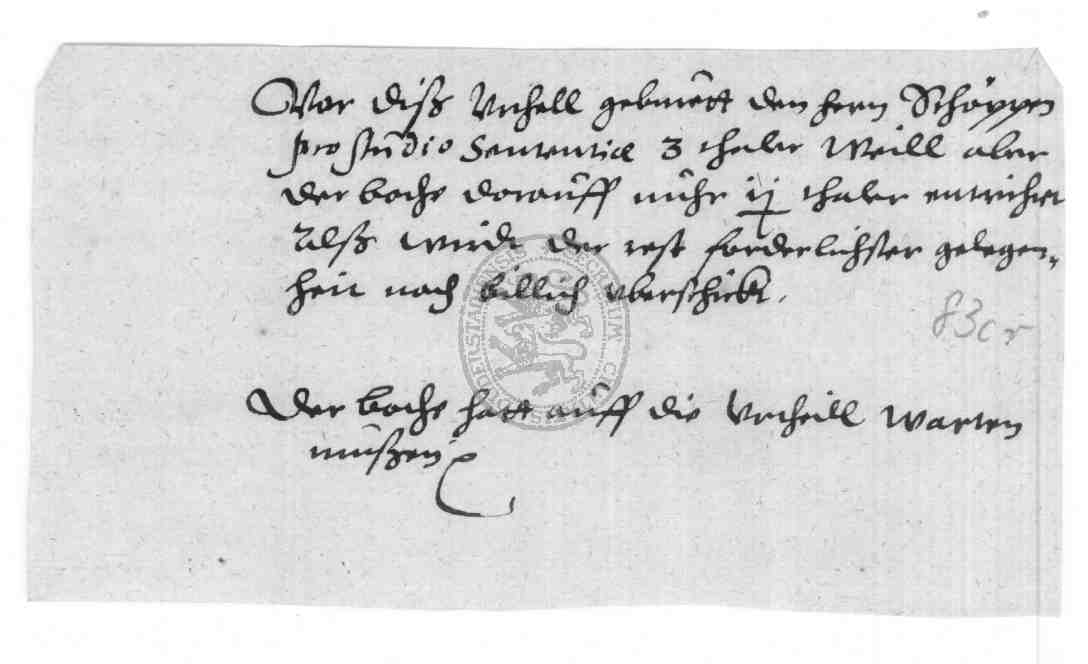 Vor diß Vrthell gebürett den hern Schöppen
pro studio Sententiæ 3 thaler Weill aber
der bothe dorauff nuhr ij thaler entrichtet
Alß wirdt der rest forderlichster gelegen-
heit noch billich vberschickt.
83cr
Der bothe hatt auff die Vrtheill warten
müßen